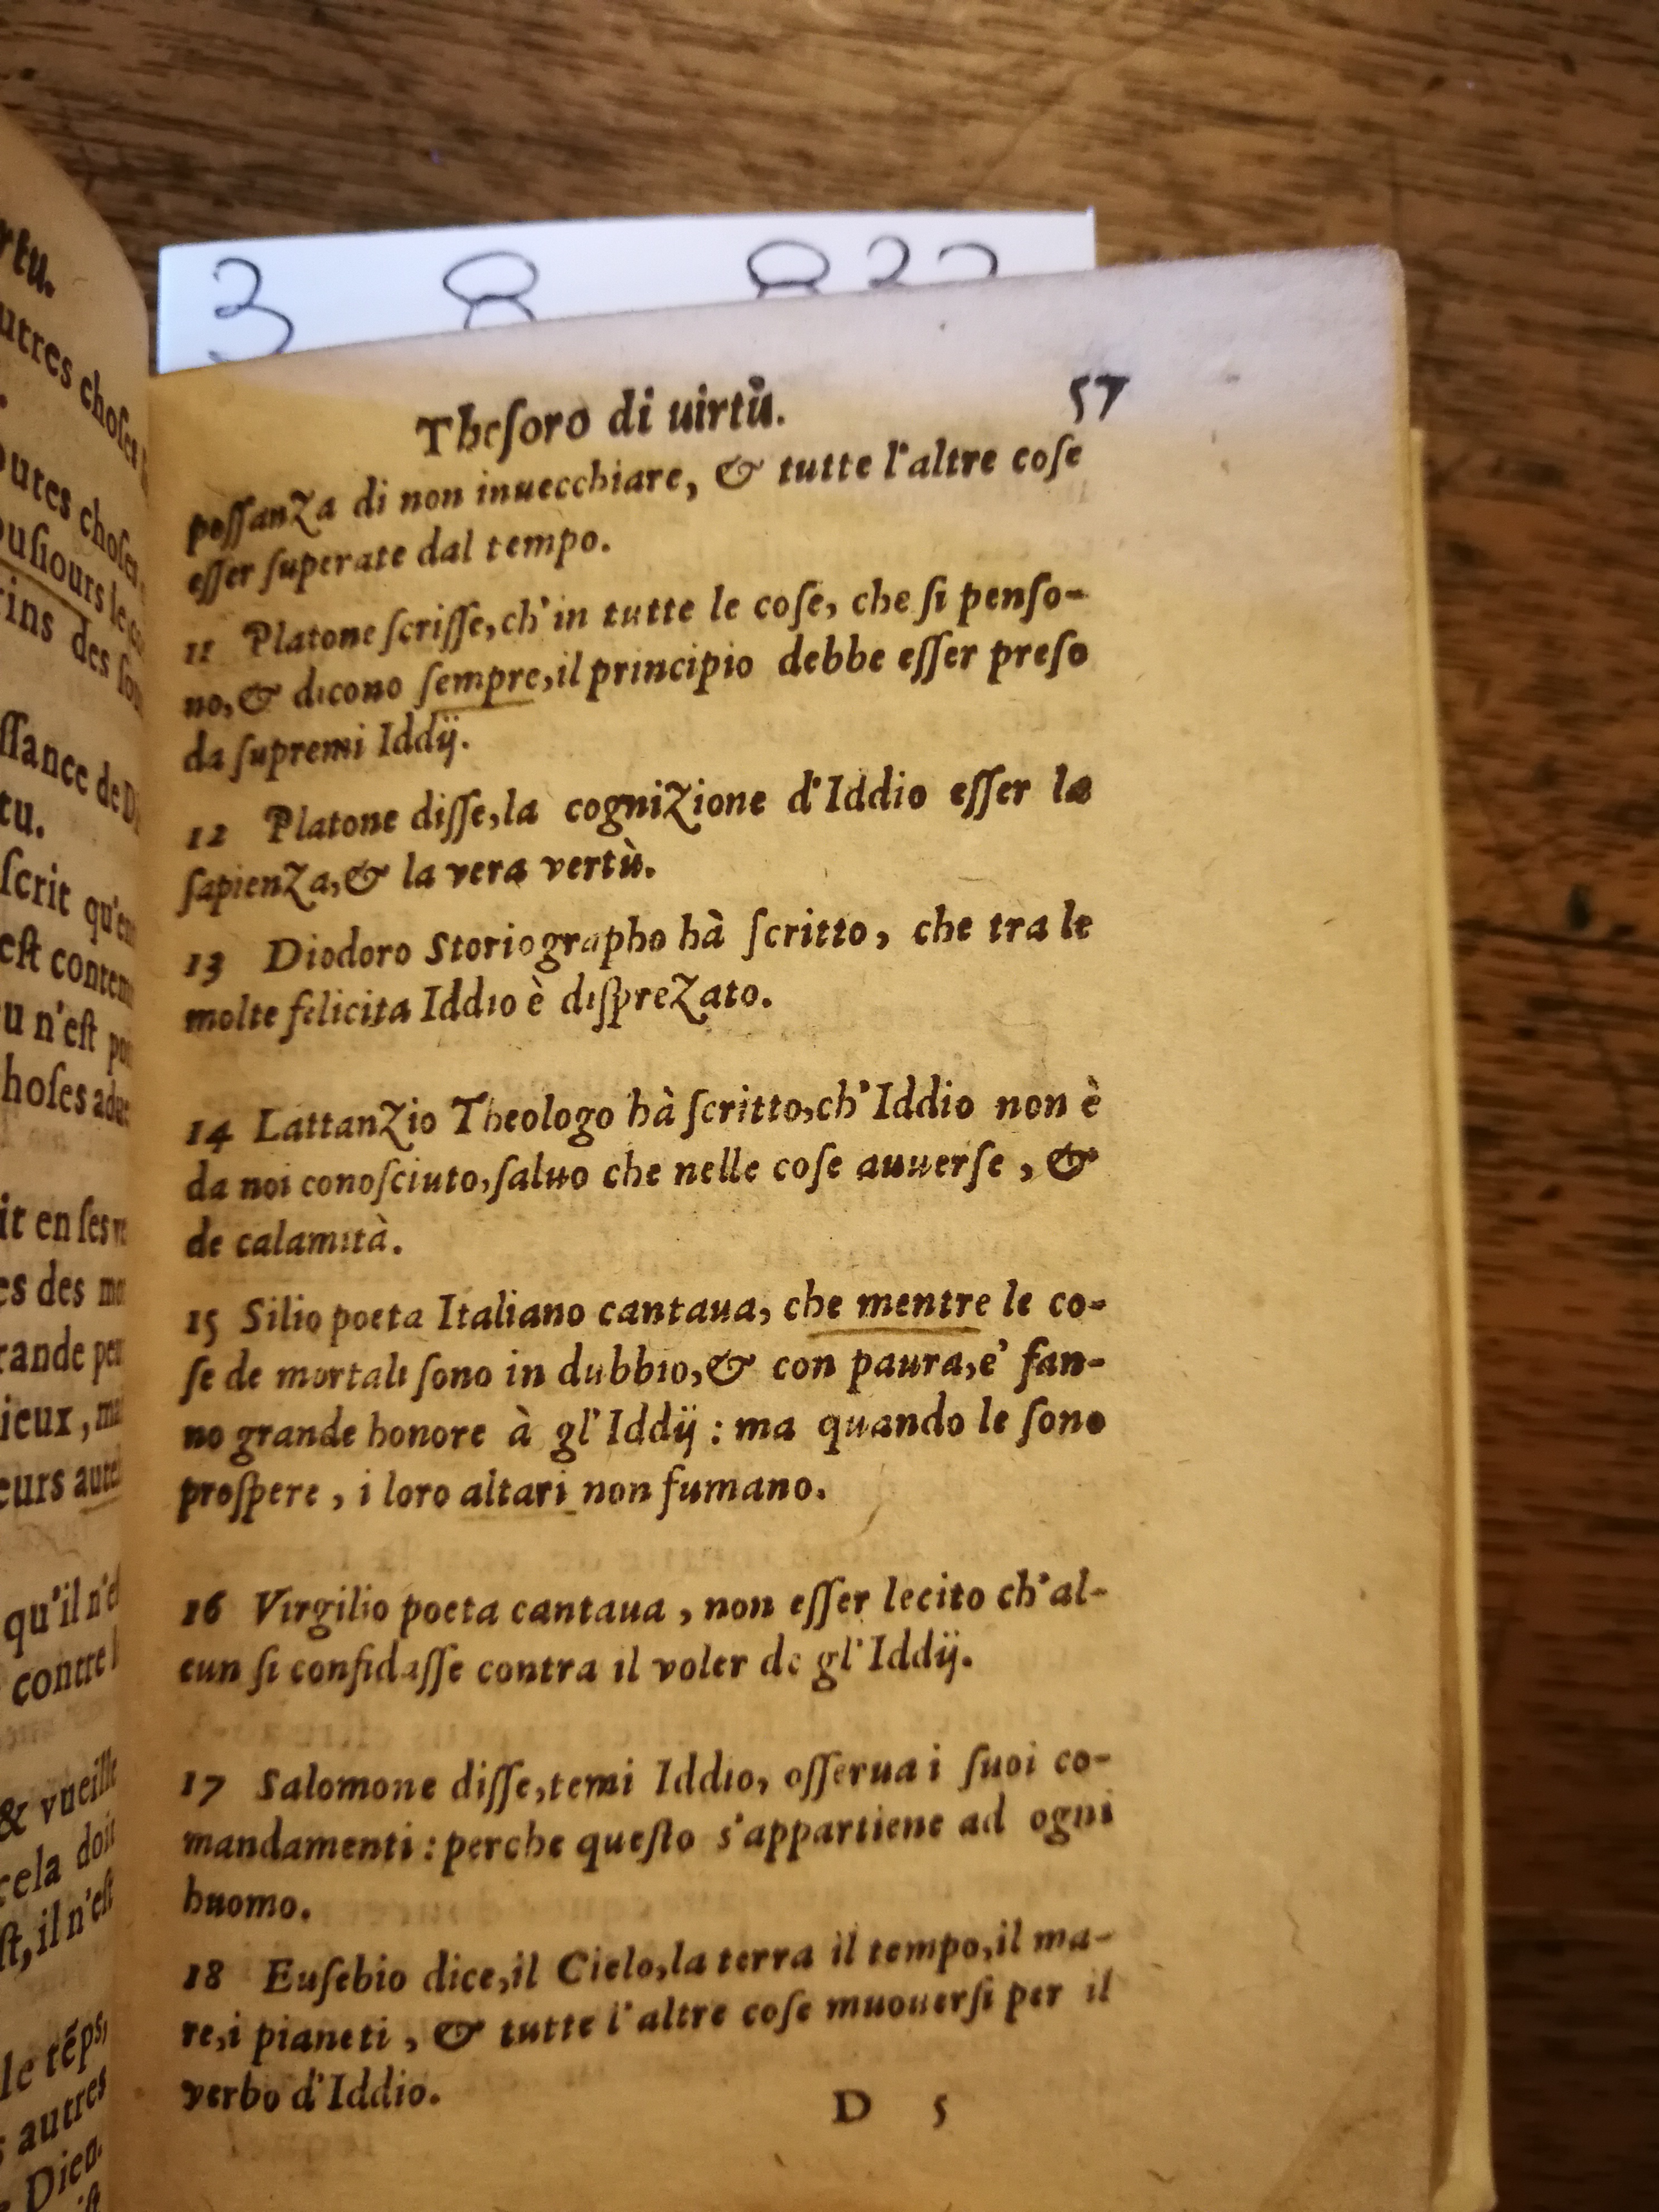 3 8
Theſoro di uirtù. 57
poſſanza di non inuecchiare, & tutte l'altre coſe
eſſer ſuperate dal tempo.
11 Platone ſcriſſe,ch'in tutte le coſe, che ſi penſo-
no,& dicono ſempre,il principio debbe eſſer preſo
da ſupremi Iddÿ.
12 Platone diſſe,la cognizione d'Iddio eſſer la
ſapienza,& la vera vertù.
13 Diodoro Storiographo hà ſcritto, che tra le
molte felicita Iddio è diſprezato.
14 Lattanzio Theologo hà ſcritto,ch'Iddio non è
da noi conoſciuto,ſaluo che nelle coſe auuerſe, &
de calamità.
15 Silio poeta Italiano cantaua, che mentre le co-
ſe de mortali ſono in dubbio,& con paura,e' fan-
no grande honore à gl'Iddÿ : ma quando le ſono
proſpere, i loro altari non fumano.
16 Virgilio poeta cantaua, non eſſer lecito ch'al-
cun ſi confidaſſe contra il voler de gl'Iddÿ.
17 Salomone diſſe,temi Iddio, oſſerua i ſuoi co-
mandamenti : perche queſto s'appartiene ad ogni
huomo.
18 Euſebio dice,il Cielo,la terra il tempo,il ma-
re,i pianeti, & tutte l'altre coſe muouerſi per il
verbo d'Iddio.
D 5
tu.
ſcrit
eſt
n'eſt
en ſes
des
rande
ieux,
qu'il
contre
& vueille
cela doit
il n'eſt
le tēps,
autres
Dieu.